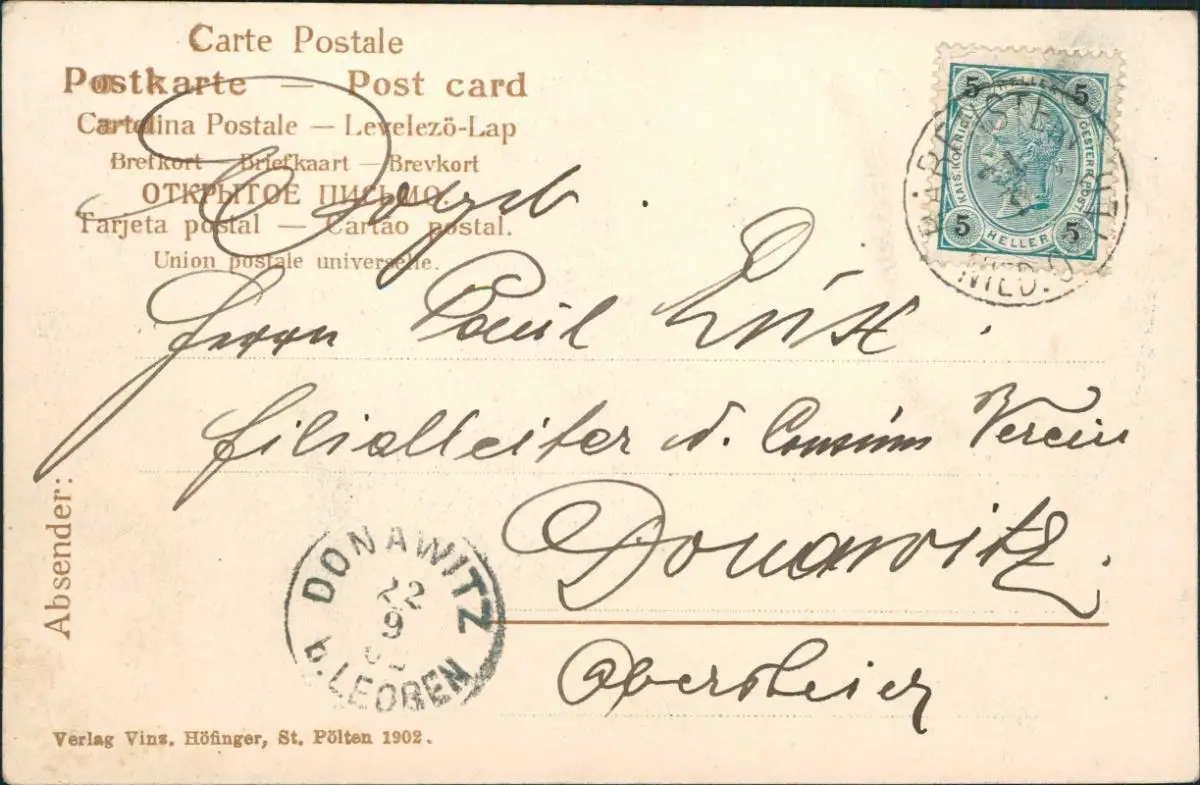 Carte Postale
Postkarte — Post card
Cartolina Postale — Levelezö-Lap
Brefkort — Briefkaart — Brevkort
ОТКРЫТОЕ ПИСЬМО.
Tarjeta postal — Cartao postal.
Union postale universelle.
5 HELLER 5
KAIS. KOENIGL. OESTERR. POST.
5 HELLER 5
NIED. Ö
Herrn Paul
Filialleiter d. Consum Verein
Donawitz.
Obersteier
Absender:
DONAWITZ
22
9
b. LEOBEN
Verlag Vinz. Höfinger, St. Pölten 1902.